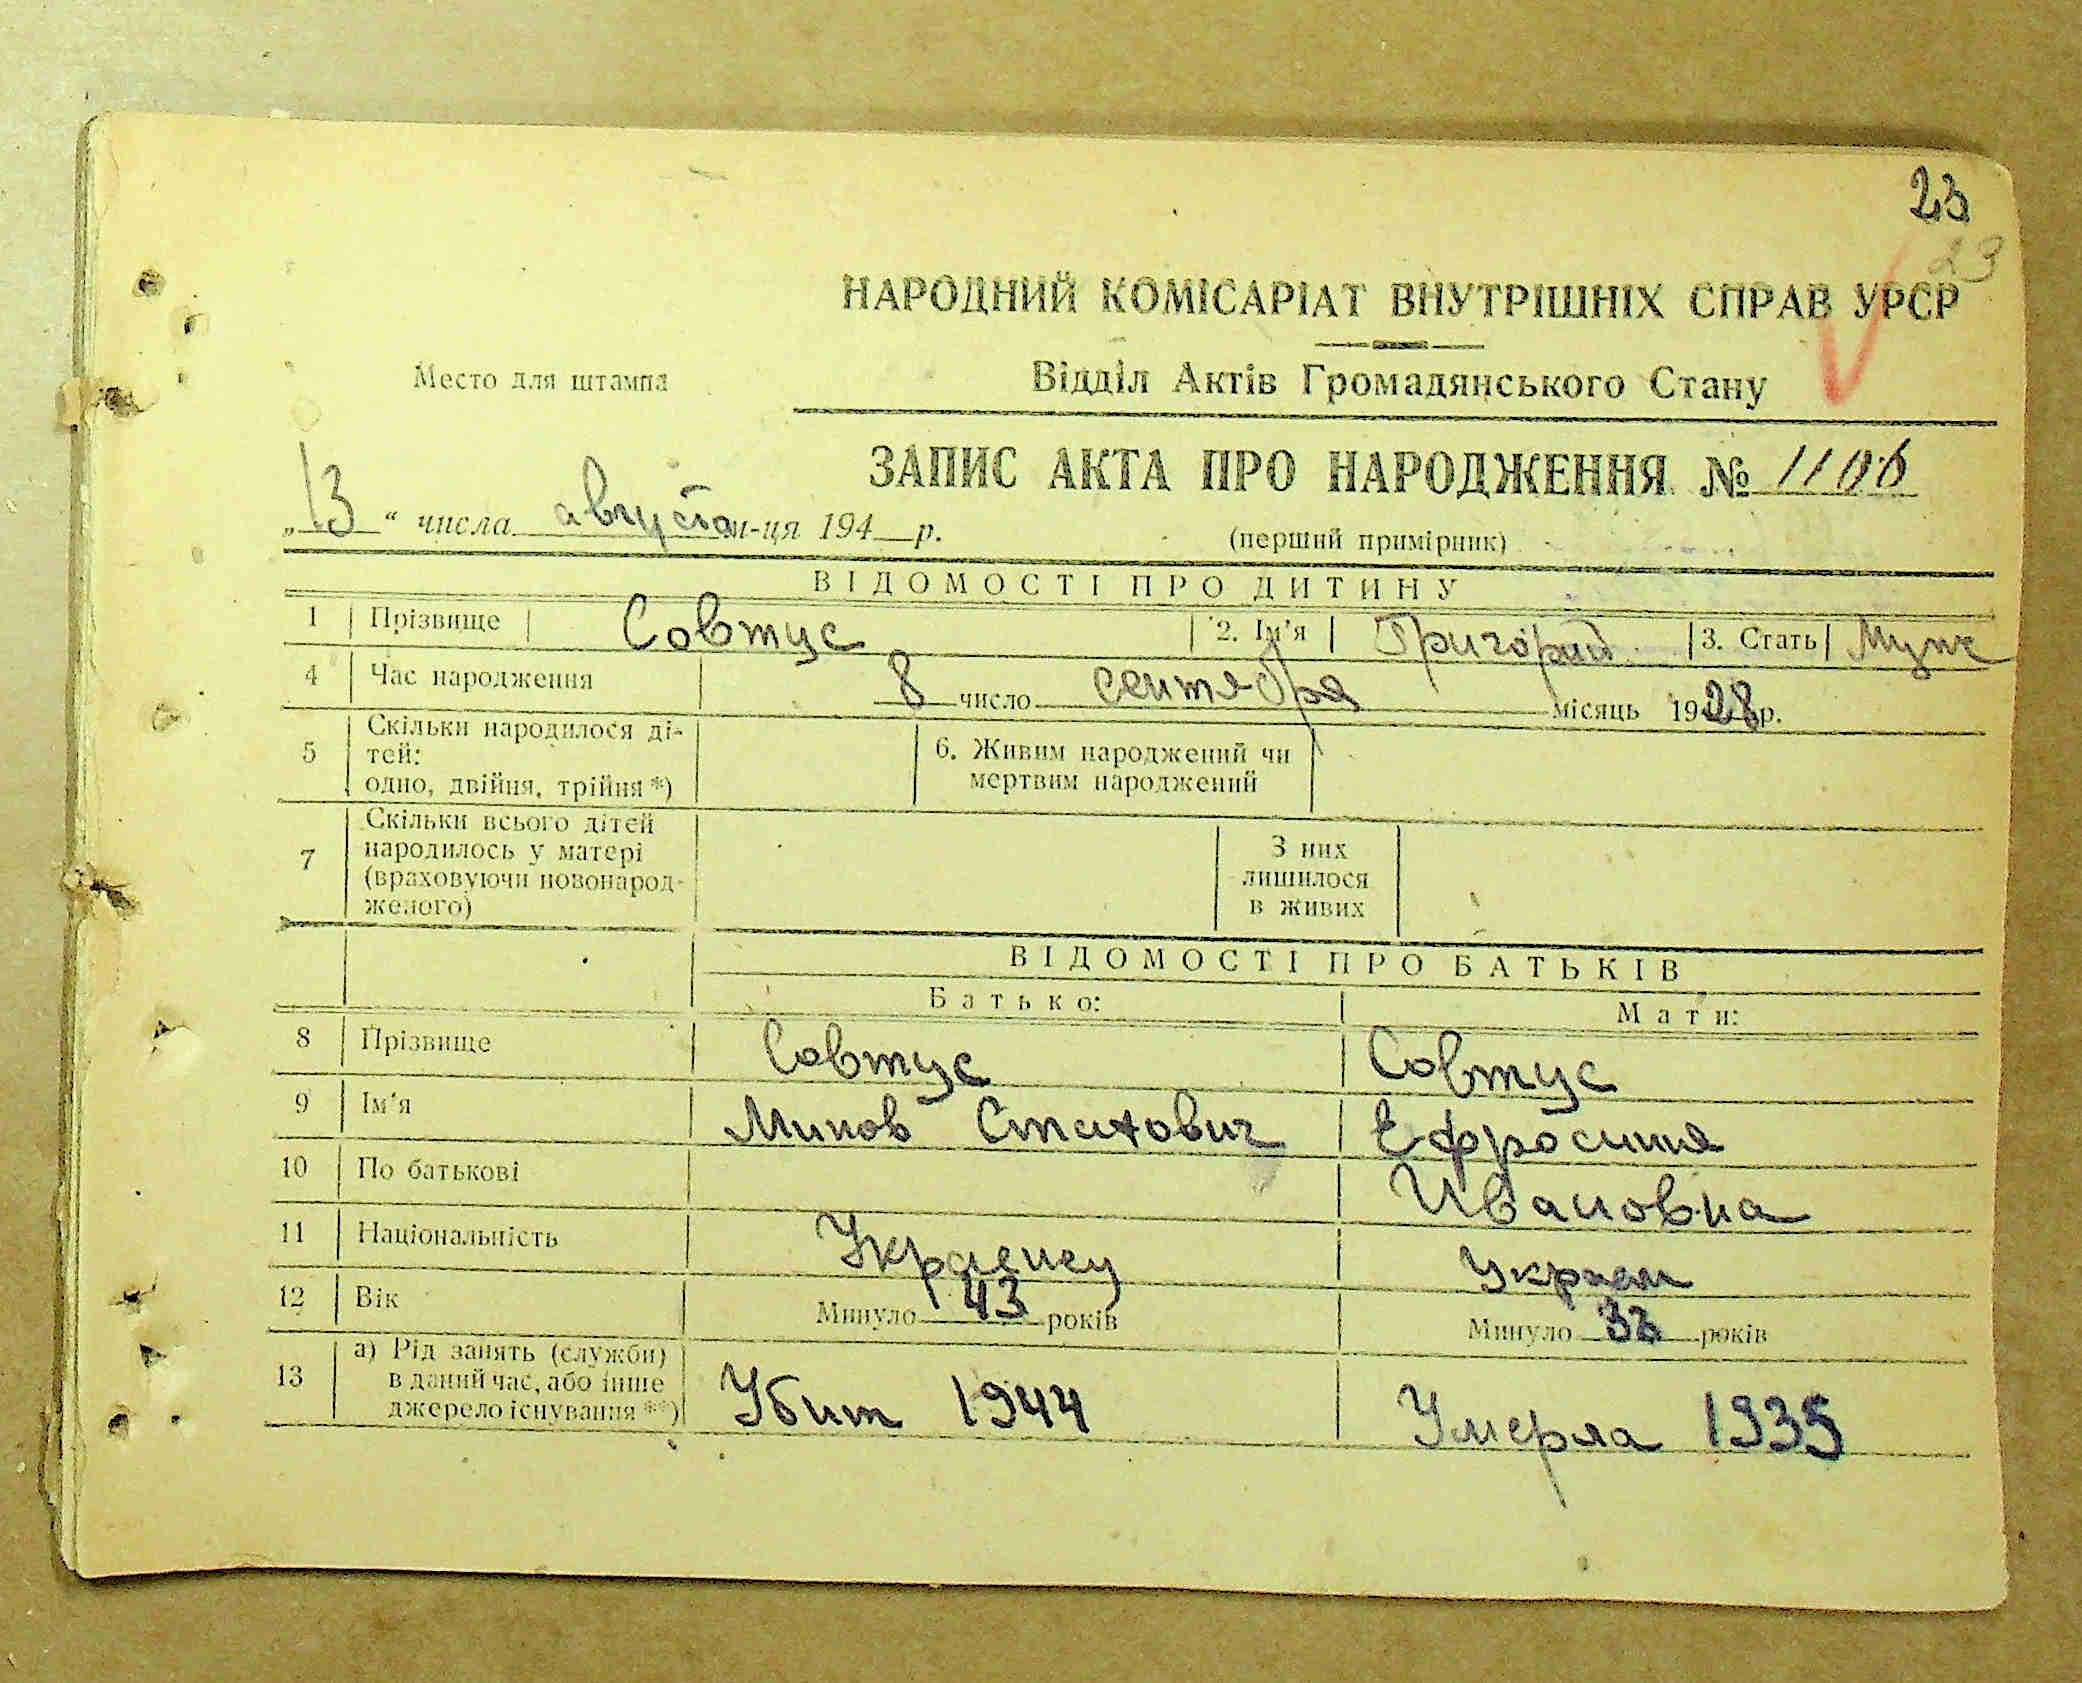 23
23
НАРОДНИЙ КОМІСАРІАТ ВНУТРІШНІХ СПРАВ УРСР
Место для штампа
Відділ Актів Громадянського Стану
ЗАПИС АКТА ПРО НАРОДЖЕННЯ № 1106
„13“ числа августа м-ця 194 р.
(перший примірник)
ВІДОМОСТІ ПРО ДИТИНУ
1 Прізвище Совтус 2. Ім'я Григорий 3. Стать Муж
4 Час народження 8 число сентября місяць 1928 р.
5 Скільки народилося ді-
тей:
одно, двійня, трійня *)
6. Живим народжений чи
мертвим народжений
7 Скільки всього дітей
народилось у матері
(враховуючи новонарод-
женого)
З них
лишилося
в живих
ВІДОМОСТІ ПРО БАТЬКІВ
Батько: Мати:
8 Прізвище Совтус Совтус
9 Ім'я Стахович Ефросиния
10 По батькові Ивановна
11 Національність Украенец Украен
12 Вік Минуло 43 років Минуло років
13 а) Рід занять (служби)
в даний час, або інше
джерело існування **)
Убит 1944 Умерла 1935